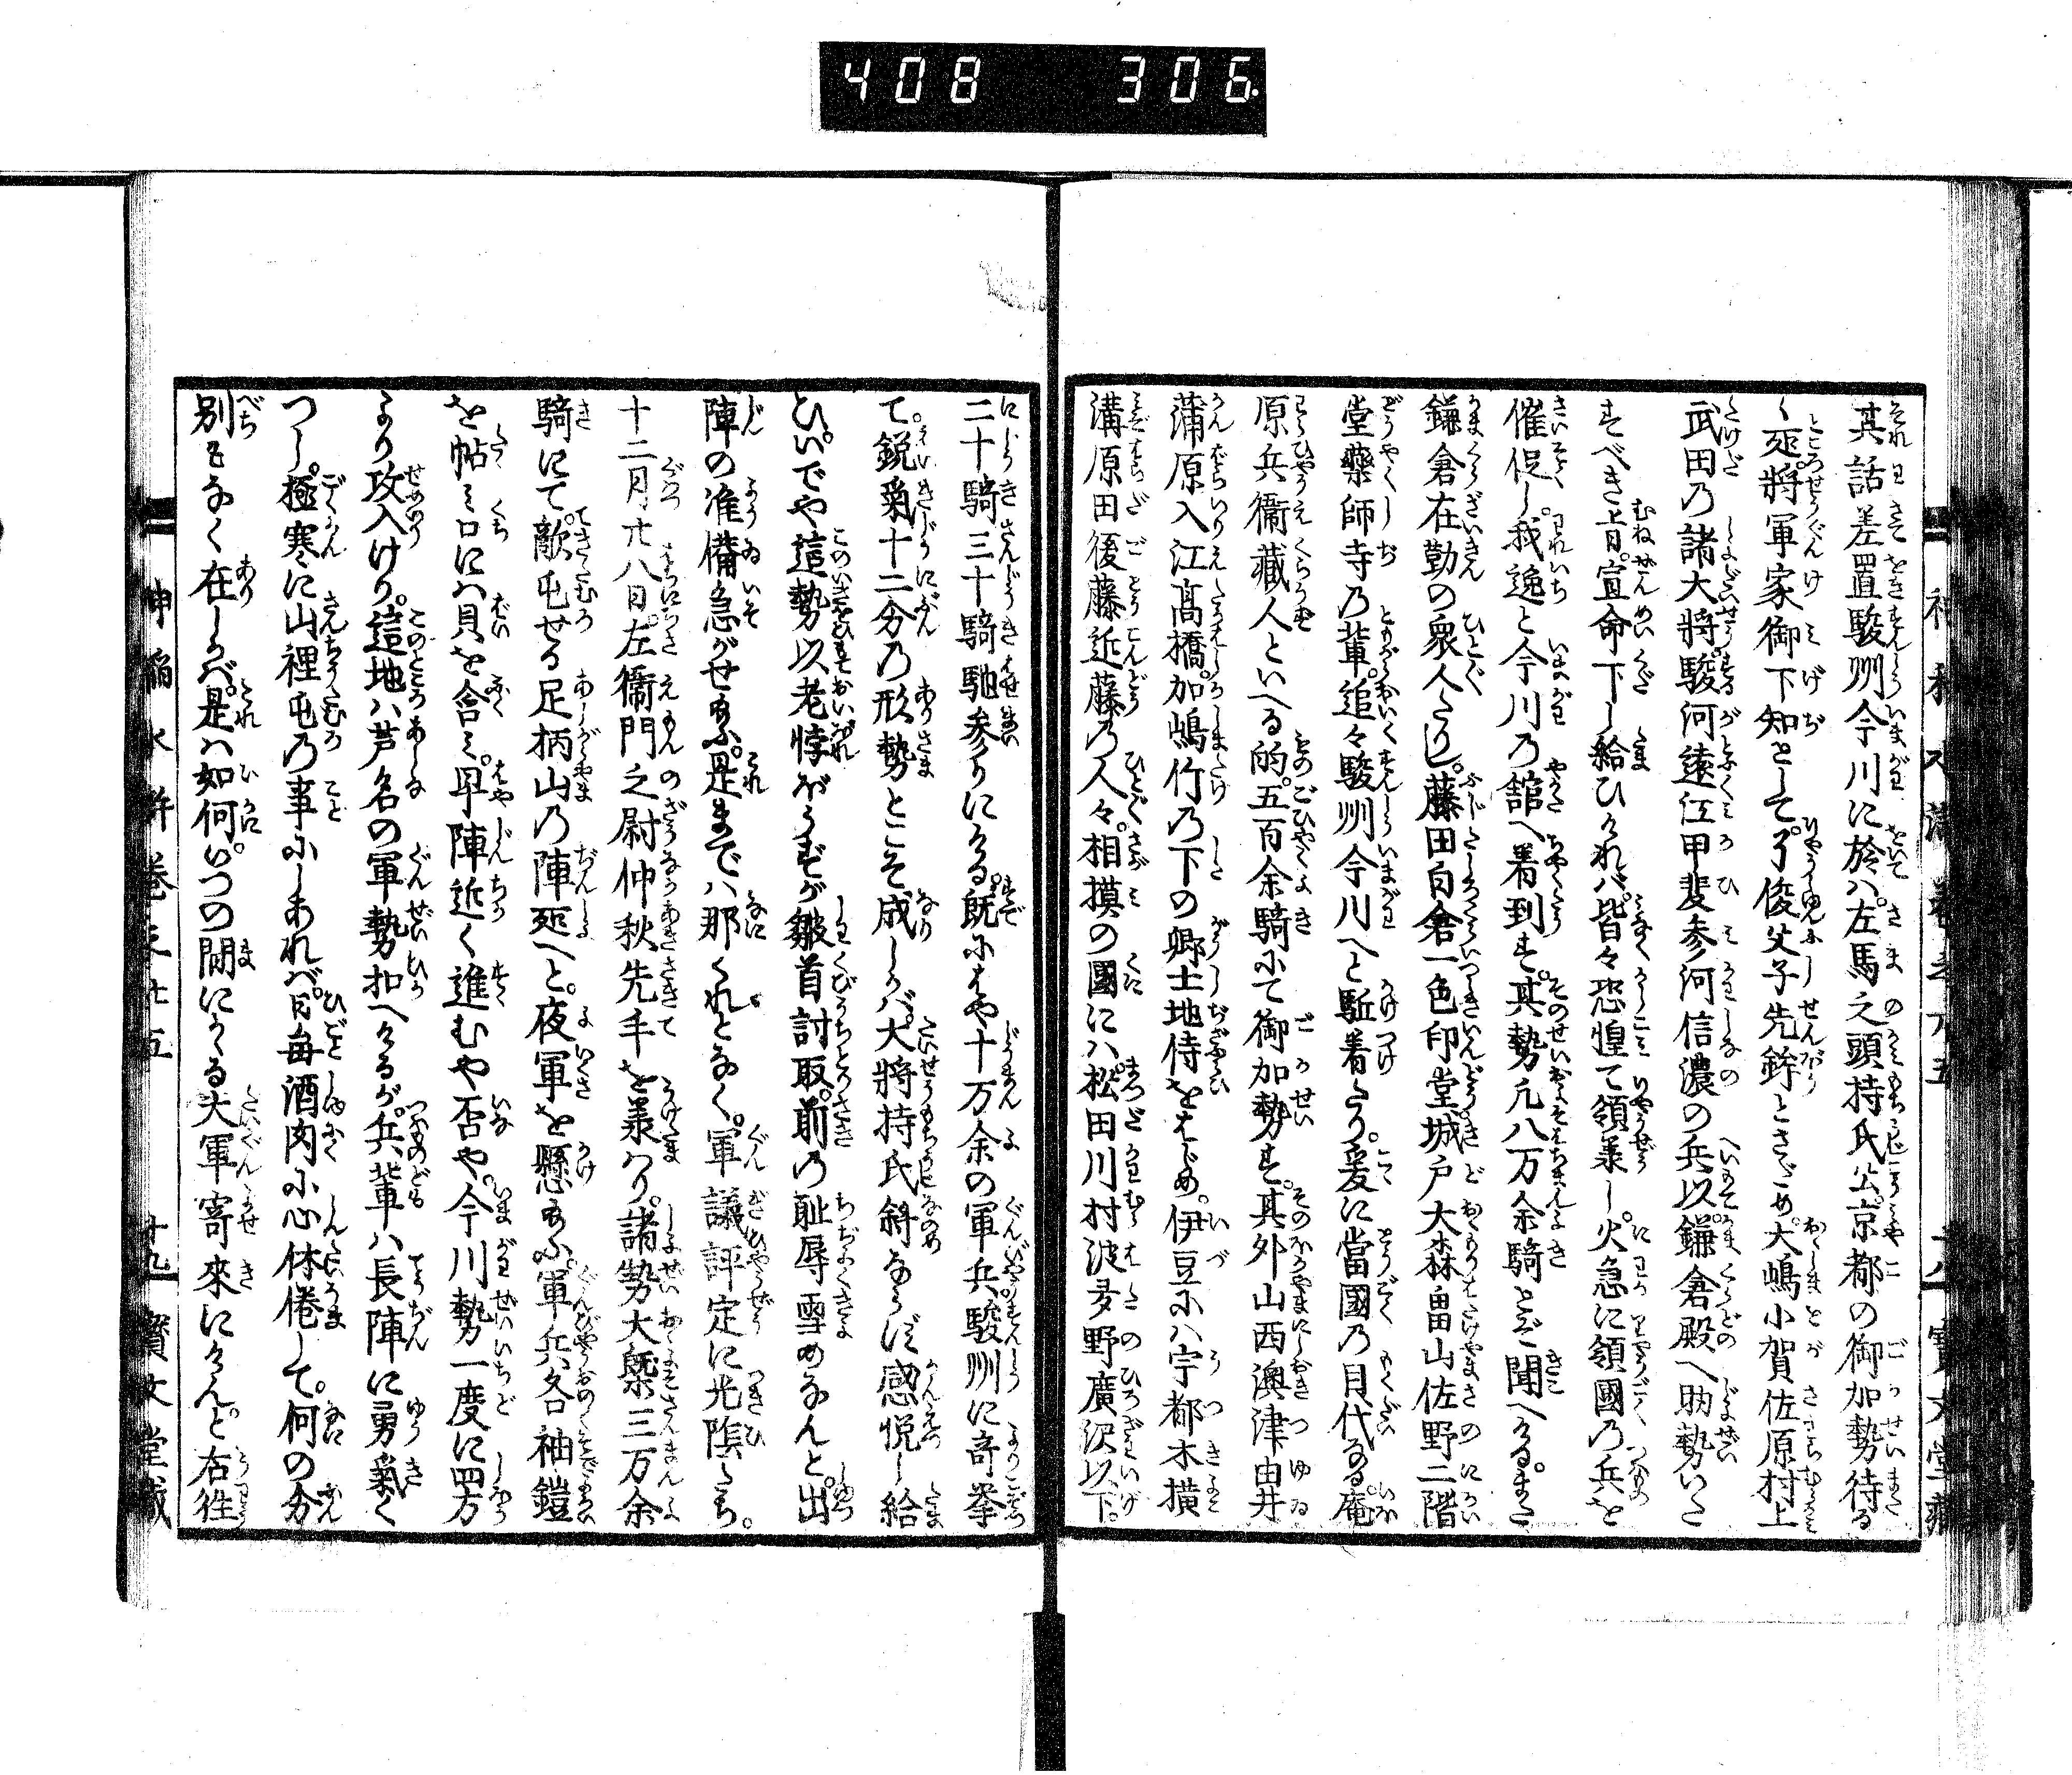 408 306
其話差置駿州今川に於ハ。左馬之頭持氏公。京都の御加勢待る
く処。将軍家御下知として。了俊父子先鉾とさだめ。大嶋小賀佐原村上
武田乃諸大将。駿河遠江甲斐参河信濃の兵以。鎌倉殿へ助勢いた
すべき旨。宣命下し給ひけれバ。皆々恐惶て領掌し。火急に領國乃兵を
催促し。我逸と今川乃舘へ着到す。其勢凡八万余騎とぞ聞へける。まさ
鎌倉在勤の衆人たりし。藤田白倉一色印堂城戸大森畠山佐野二階
堂藥師寺乃輩。追々駿州今川へと駈着たり。爰に當國乃目代なる。庵
原兵衞藏人といへる的。五百余騎にて御加勢す。其外山西澳津由井
蒲原入江髙橋。加嶋竹乃下の郷士地侍をはじめ。伊豆にハ宇都木横
溝原田後藤近藤乃人々。相摸の國にハ松田川村波多野廣沢以下。
二十騎三十騎馳参りにける。既にはや十万余の軍兵駿州に竒挙
て。鋭氣十二分乃形勢とこそ成しかバ。大将持氏斜ならず感悦し給
ひ。いでや這勢以老悖ぼうずが皺首討取。前乃耻辱雪めなんと。出
陣の准備急がせ給ふ。是まで八那くれとなく。軍議評定に光陰たち。
十二月廿八日。左衞門之尉仲秋先手を承ハり。諸勢大槩三万余
騎にて。敵屯せる足柄山乃陣処へと。夜軍を懸給ふ。軍兵各袖鎧
を帖ミ口にハ貝を含ミ。早陣近く進むや否や。今川勢一度に四方
より攻入けり。這地ハ芦名の軍勢扣へけるが。兵輩ハ長陣に勇氣く
つし。極寒に山裡屯乃事にしあれバ。日毎酒肉に心体倦して。何の分
別もなく在しかバ。是ハ如何。いつの間にかゝる大軍寄來にけんと。右徃
神稲水滸 巻之廿五 十九 寳文堂藏